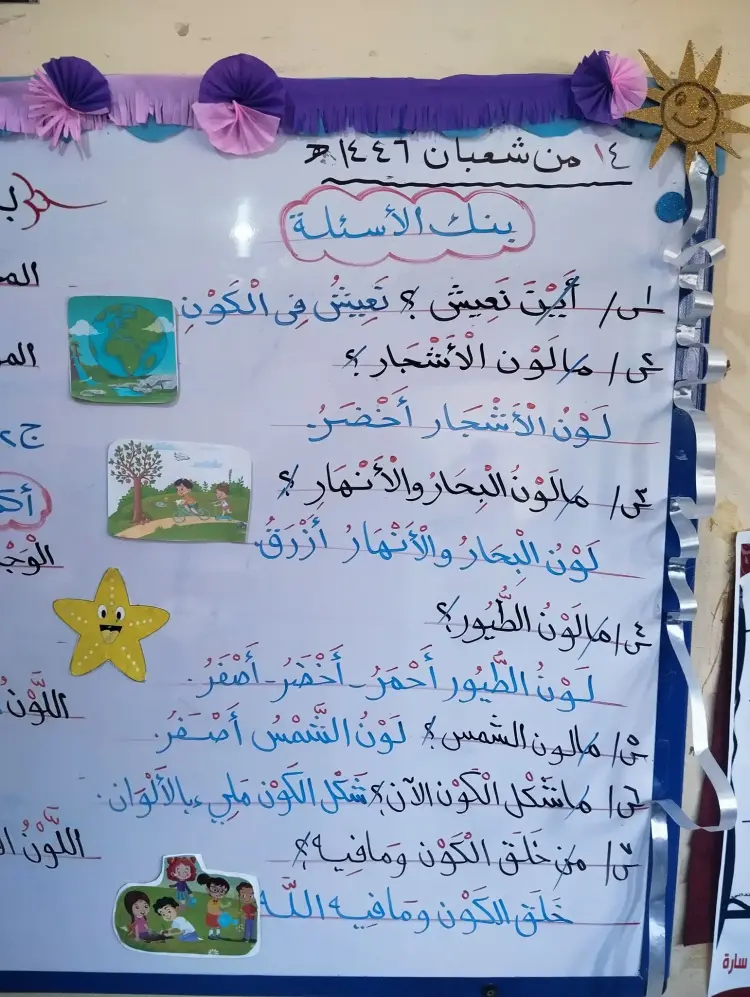 ١٤ من شعبان ١٤٤٦ه
بنك الأسئلة
س١/ أَيْنَ نَعِيش ؟ نَعِيشُ فِي الْكَوْنِ
س٢/ مالَوْن الْأَشْجار ؟
لَوْنُ الْأَشْجار أَخْضَرُ.
س٣/ مالَوْنُ الْبِحَارُ والْأَنْهَارِ ؟
لَوْنُ الْبِحَارُ والْأَنْهَارُ أَزْرَقُ.
س٤/ مالَوْنُ الطُّيُور؟
لَوْنُ الطُّيُور أَحْمَرُ - أَخْضَرُ - أَصْفَرُ.
س٥/ مالون الشمس؟ لَوْنُ الشَّمْسُ أَصْفَرُ.
س٦/ ماشَكْل الْكَوْن الآن؟ شَكْل الْكَوْن مَلِيء بِالأَلْوَان.
س٧/ من خَلَقَ الْكَوْن وَمَافِيه؟
خَلَقَ الْكَوْن وَمَافِيه اللَّه
ج٢
اللَّوْنُ
سارة